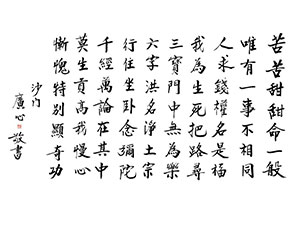 苦苦甜甜命一般
唯有一事不相同
人求錢權名是福
我為生死把路尋
三寶門中無為樂
六字洪名淨土宗
行住坐臥念彌陀
千經萬論在其中
莫生貢高我慢心
慚愧特別顯奇功
沙門
廣心敬書